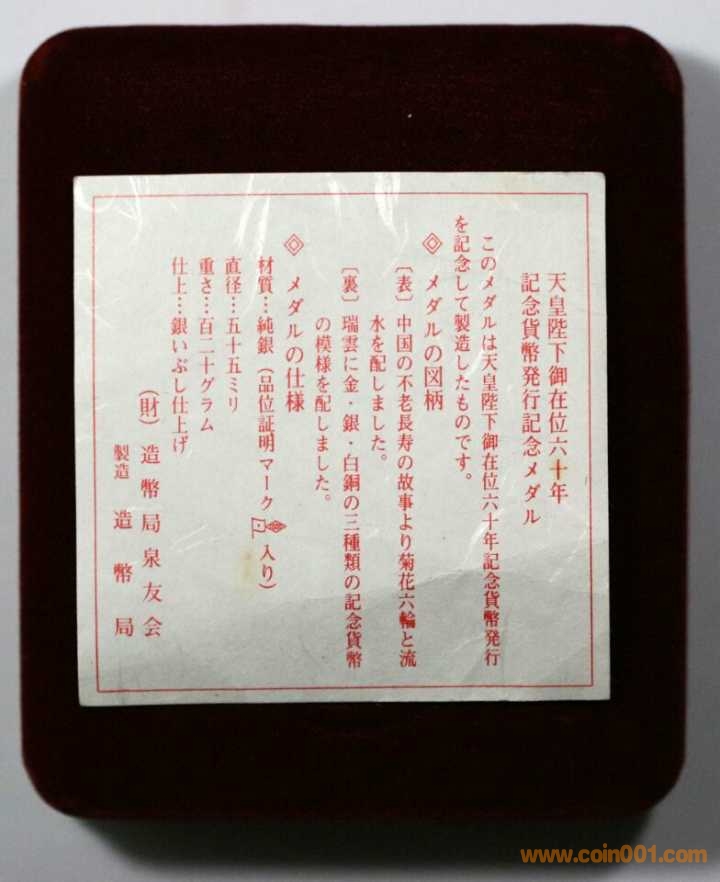 天皇陛下御在位六十年
記念貨幣発行記念メダル
このメダルは天皇陛下御在位六十年記念貨幣発行
を記念して製造したものです。
◈ メダルの図柄
〔表〕中国の不老長寿の故事より菊花六輪と流
水を配しました。
〔裏〕瑞雲に金・銀・白銅の三種類の記念貨幣
の模様を配しました。
◈ メダルの仕様
材質…純銀(品位証明マーク入り)
直径…五十五ミリ
重さ…百二十グラム
仕上…銀いぶし仕上げ
(財)造幣局泉友会
製造 造幣局
www.coin001.com